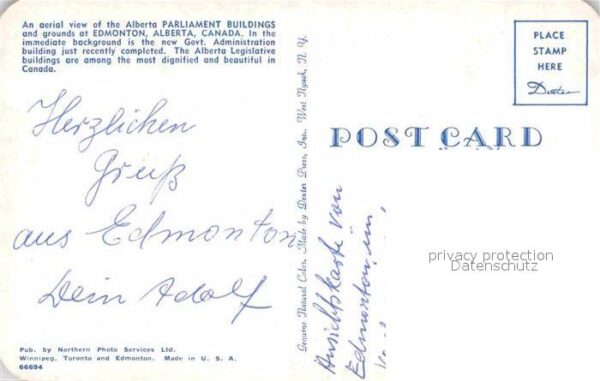 An aerial view of the Alberta PARLIAMENT BUILDINGS
and grounds at EDMONTON, ALBERTA, CANADA. In the
immediate background is the new Govt. Administration
building just recently completed. The Alberta Legislative
buildings are among the most dignified and beautiful in
Canada.
Herzlichen
Gruß
aus Edmonton
Dein Adolf
Pub. by Northern Photo Services Ltd.
Winnipeg, Toronto and Edmonton. Made in U. S. A.
66694
Genuine Natural Color. Made by Dexter Press, Inc., West Nyack, N. Y.
POST CARD
PLACE
STAMP
HERE
Dexter
Ansichtskarte von
Edmonton in
privacy protection
Datenschutz